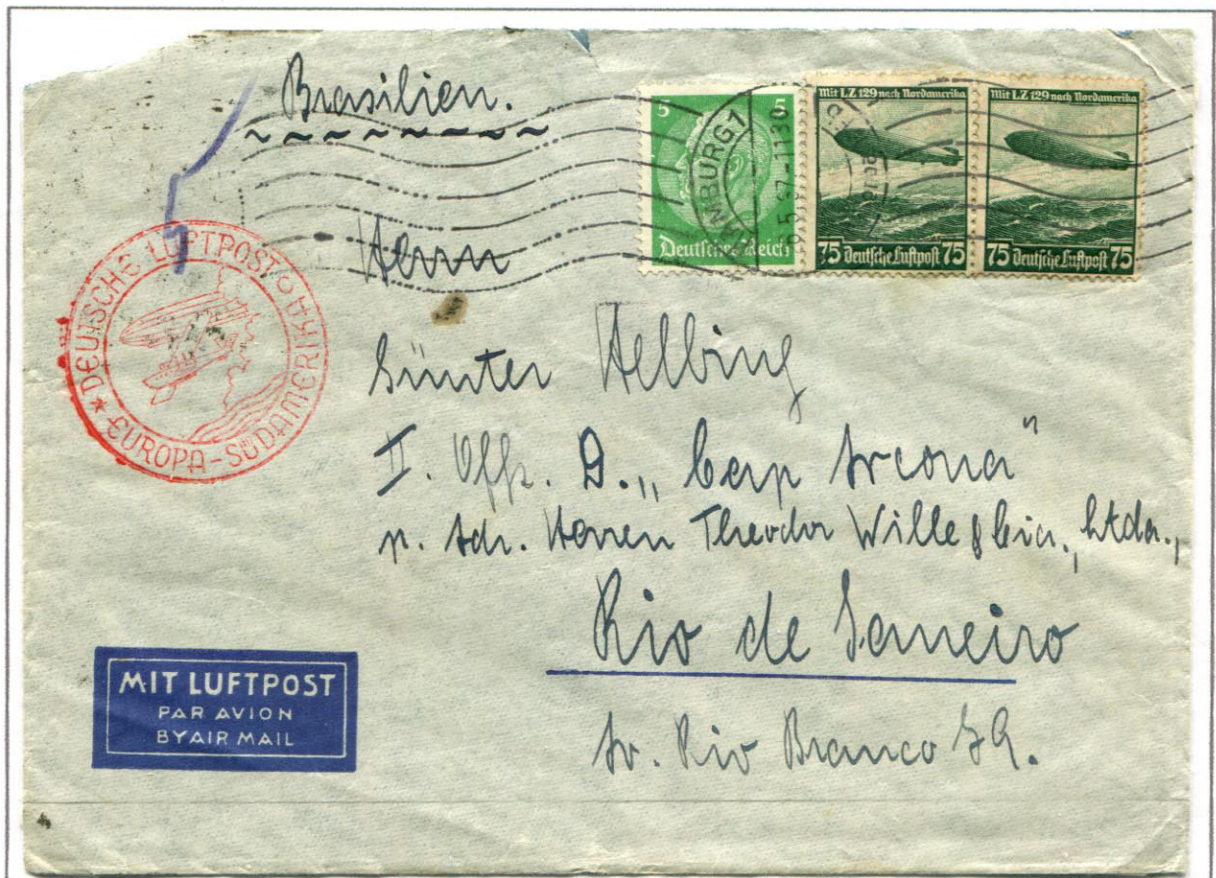 Brasilien.
5 5
Deutsches Reich
HAMBURG 1
Mit LZ 129 nach Nordamerika
75 Deutsche Luftpost 75
Mit LZ 129 nach Nordamerika
75 Deutsche Luftpost 75
Herrn
★ DEUTSCHE LUFTPOST
EUROPA-SÜDAMERIKA
Günter Helbing
II. Offz. D. „Cap Arcona“
p. Adr. Herren Theodor Wille & Cia., Ltda.,
Rio de Janeiro
MIT LUFTPOST
PAR AVION
BY AIR MAIL
Av. Rio Branco 79.